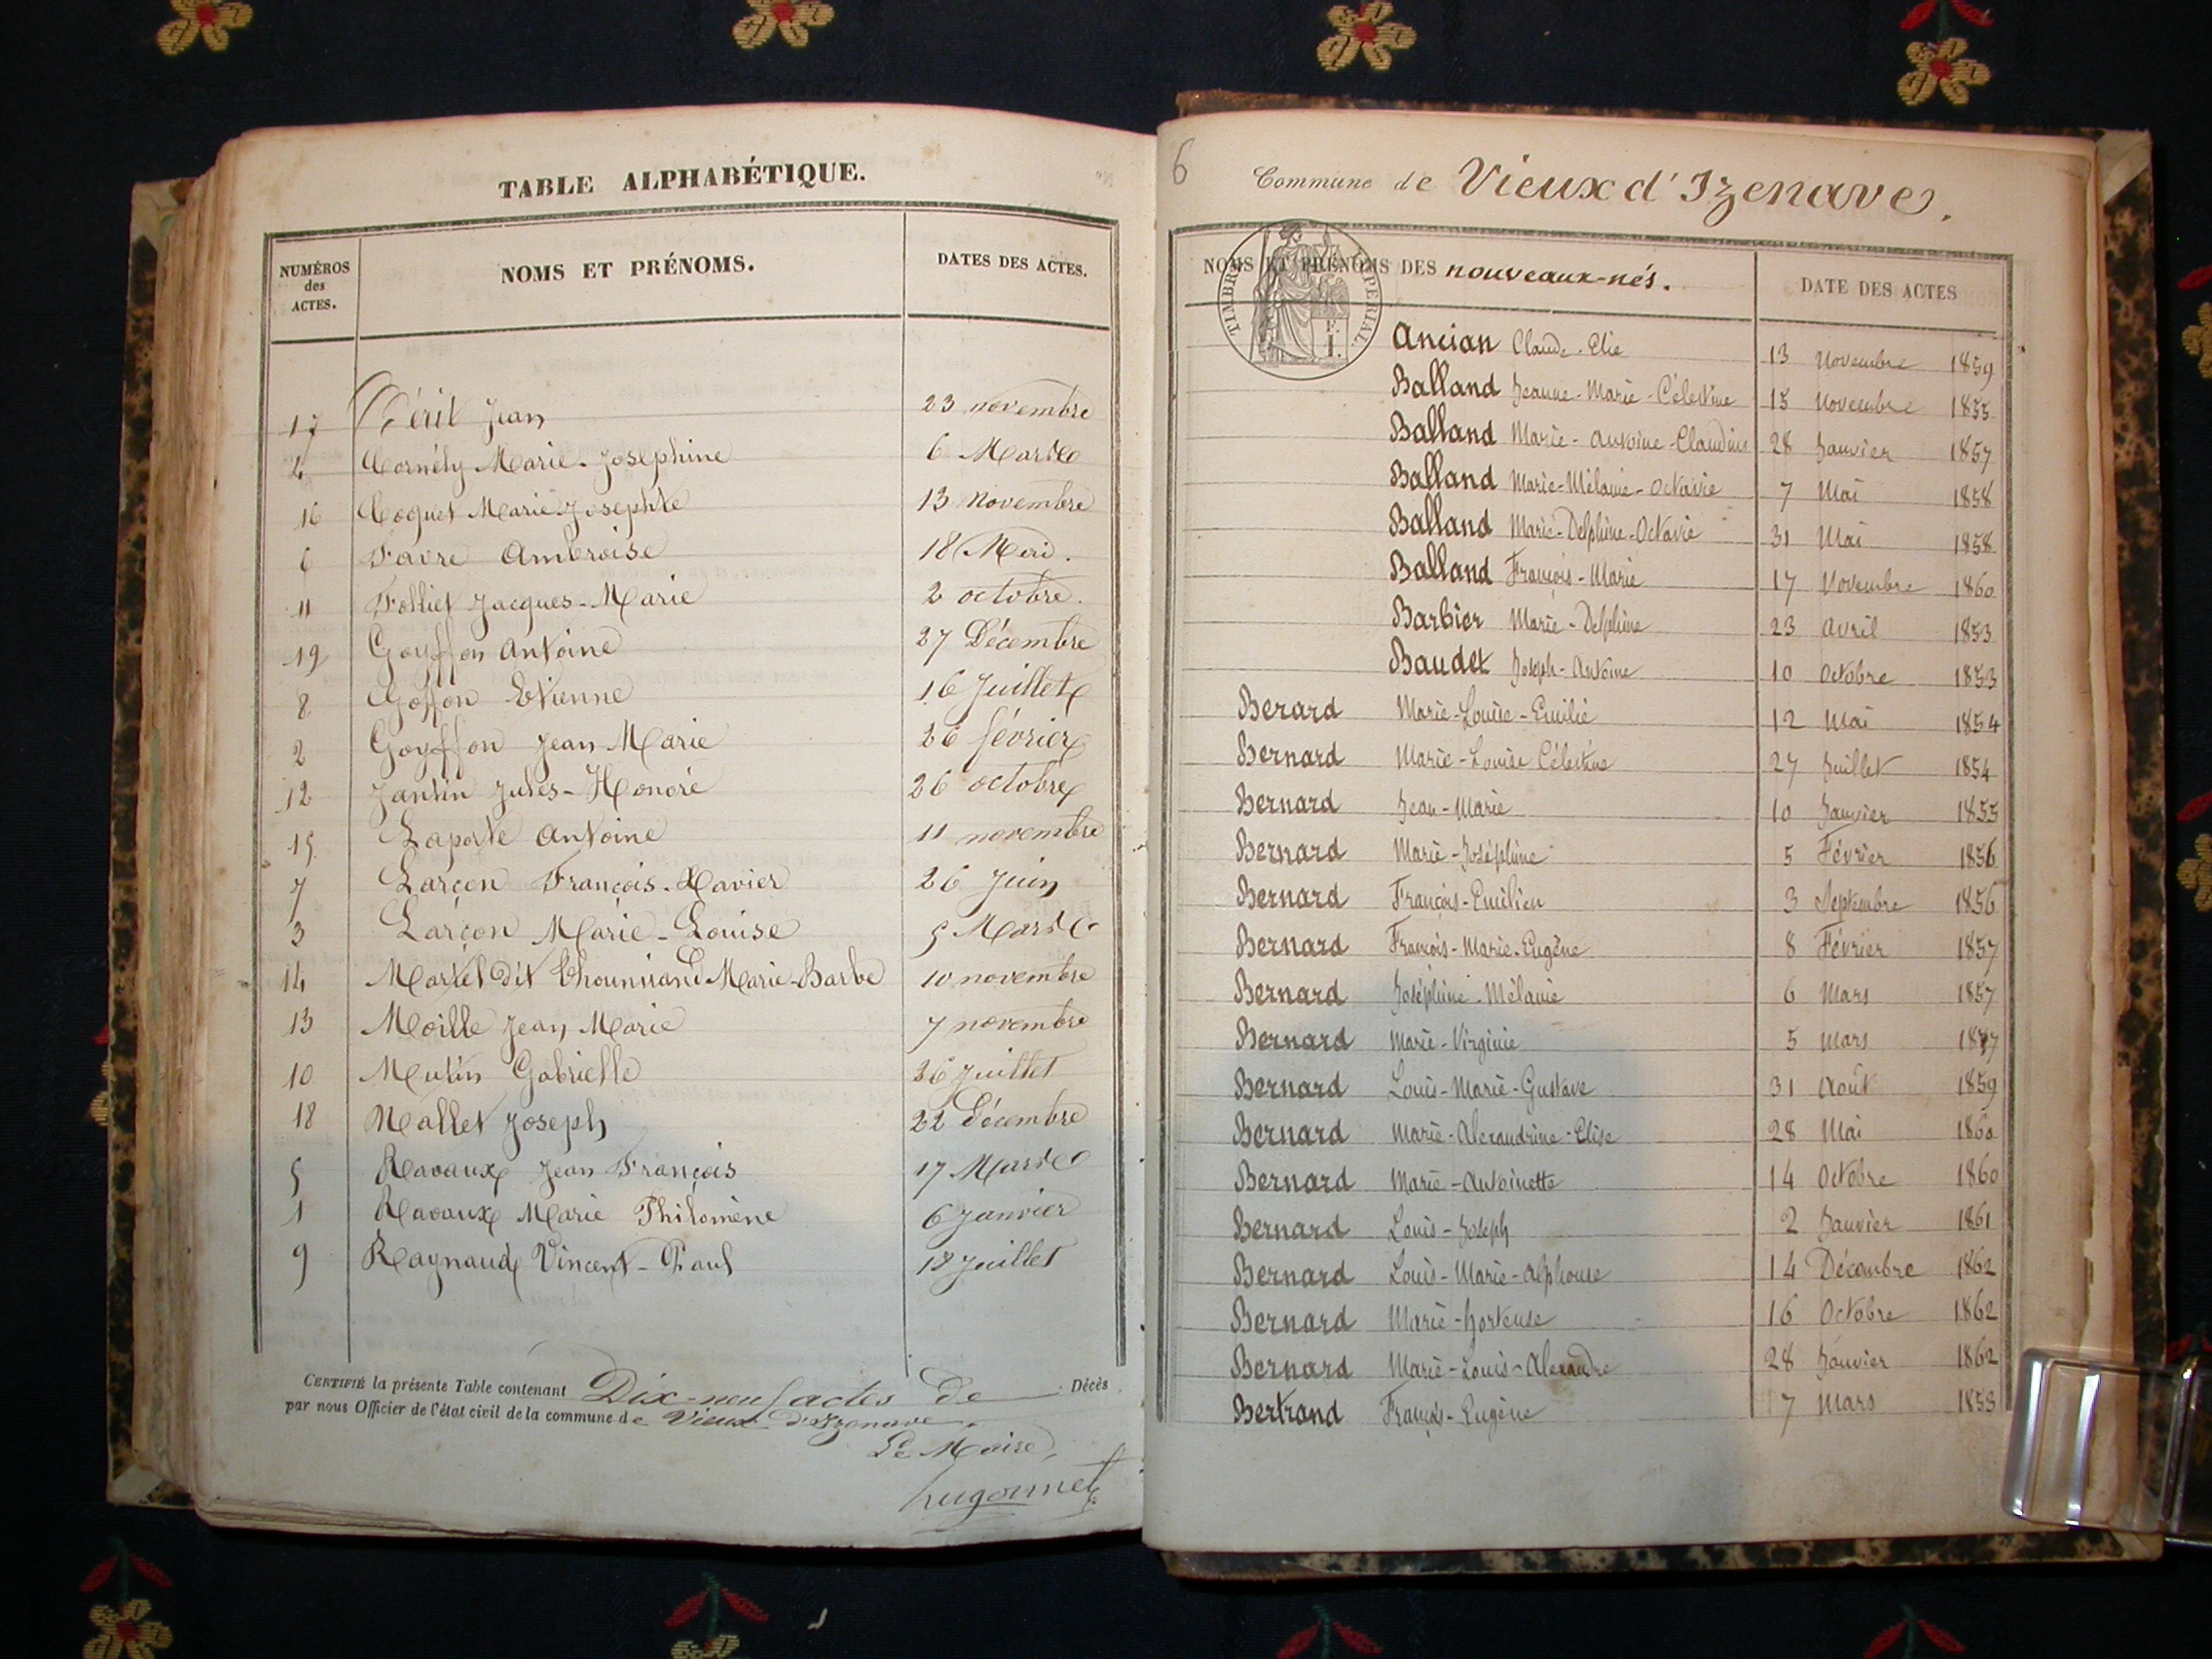 TABLE ALPHABÉTIQUE.
NUMÉROS des ACTES. NOMS ET PRÉNOMS. DATES DES ACTES.
17 Jean 23 novembre
4 Cornély Marie-Josephine 6 Mars
16 Coquet Marie-Josephte 13 Novembre
6 Favre Ambroise 18
11 Folliet Jacques-Marie 2 octobre.
19 Goyffon Antoine 27 Décembre
8 Goffon Etienne 16 Juillet
2 Goyffon Jean Marie 26 février
12 Jantin Jules-Honoré 26 octobre
15 Laporte Antoine 11 novembre
7 Larçon François-Xavier 26 Juin
3 Larçon Marie-Louise 5 Mars
14 Martel dit Marie-Barbe 10 novembre
13 Moille Jean Marie 7 novembre
10 Mutin Gabrielle 26 Juillet
18 Nallet Joseph 22 Décembre
5 Ravaux Jean François 17 Mars
1 Ravaux Marie Philomène 6 Janvier
9 Raynaud Vincent-Paul 18 Juillet
CERTIFIÉ la présente Table contenant Dix-neuf actes de Décès
par nous Officier de l'état civil de la commune de Vieux d'Izenave.
Le Maire,
hugonnet
6
Commune de Vieux d'Izenave.
TIMBRE IMPÉRIAL
NOMS ET PRÉNOMS DES nouveaux-nés. DATE DES ACTES
Ancian Claude-Elie 13 Novembre 1859
Balland Jeanne-Marie-Célestine 15 Novembre 1855
Balland Marie-Antoine-Claudius 28 Janvier 1857
Balland Marie-Mélanie-Octavie 7 Mai 1858
Balland Marie-Delphine-Octavie 31 Mai 1858
Balland François-Marie 17 Novembre 1860
Barbier Marie-Delphine 23 Avril 1853
Baudet Joseph-Antoine 10 Octobre 1853
Berard Marie-Louise-Emilie 12 Mai 1854
Bernard Marie-Louise Célestine 27 Juillet 1854
Bernard Jean-Marie 10 Janvier 1855
Bernard Marie-Joséphine 5 Février 1856
Bernard François-Emilien 3 Septembre 1856
Bernard François-Marie-Eugène 8 Février 1857
Bernard Joséphine-Mélanie 6 Mars 1857
Bernard Marie-Virginie 5 Mars
Bernard Louis-Marie-Gustave 31 Août 1859
Bernard Marie-Alexandrine-Elise 28 Mai 1860
Bernard Marie-Antoinette 14 Octobre 1860
Bernard Louis-Joseph 2 Janvier 1861
Bernard Louis-Marie-Alphonse 14 Décembre 1862
Bernard Marie-hortense 16 Octobre 1862
Bernard Marie-Louis-Alexandre 28 Janvier 1862
Bertrand François-Eugène 7 Mars 1853